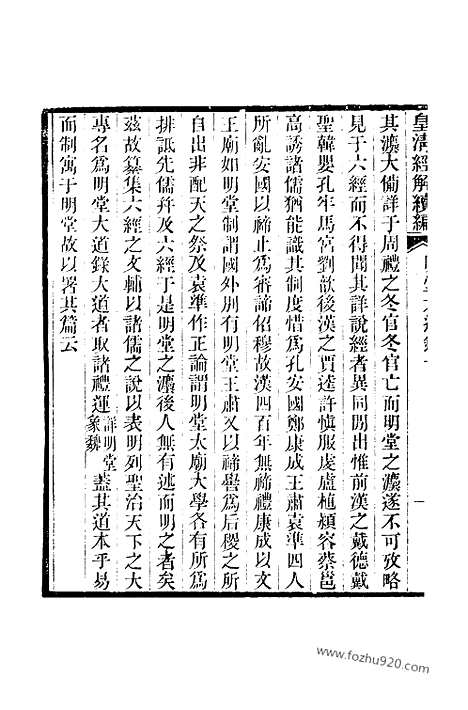 皇淸經解續編
其灋大僃詳于周禮之冬官冬官亡而明堂之灋遂不可攷略
見于六經而不得聞其詳說經者異同閒出惟前漢之戴德戴
聖韓嬰孔牢馬宮劉歆後漢之賈逵許愼服虔盧植潁容蔡邕
高誘諸儒猶能識其制度惜爲孔安國鄭康成王肅袁準四人
所亂安國以禘止爲審諦佋穆故漢四百年無禘禮康成以文
王廟如明堂制謂國外別有明堂王肅又以禘嚳爲后稷之所
自出非配天之祭及袁準作正論謂明堂太廟大學各有所爲
排詆先儒幷及六經于是明堂之灋後人無有述而明之者矣
茲故纂集六經之文輔以諸儒之說以表明列聖治天下之大
專名爲明堂大道錄大道者取諸禮運詳明堂象魏蓋其道本乎易
而制寓于明堂故以署其篇云
www.fozhu920.com